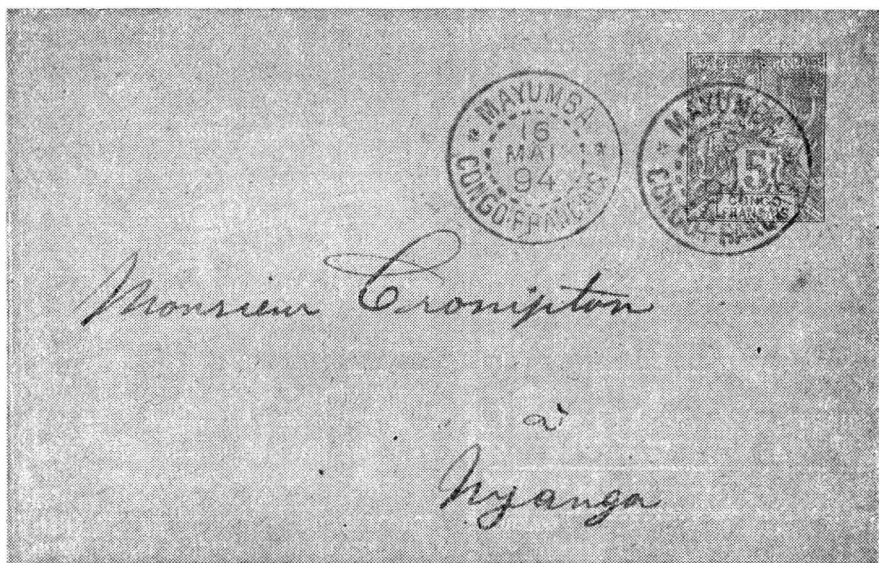 MAYUMBA
16
MAI
94
CONGO FRANÇAIS
MAYUMBA
CONGO FRANÇAIS
5
CONGO
FRANÇAIS
Monsieur Crompton
à
Nyanga